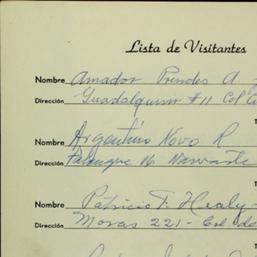 Lista de Visitantes
Nombre Amador Prendes A.
Dirección Guadalquivir #11 Col
Nombre Argentino Novo R
Dirección Palenque 16 Narvarte
Nombre Patricio F. Healy
Dirección Moras 221 - Col del